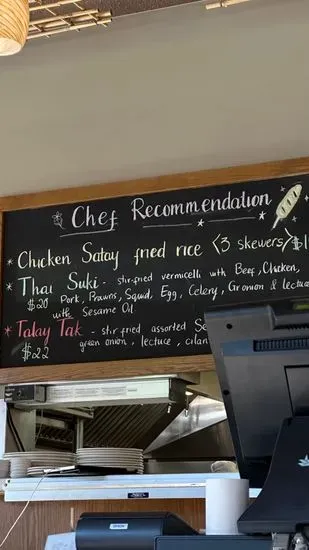 Chef Recommendation
* Chicken Satay fried rice <3 skewers>
* Thai Suki - stir-fried vermicelli with Beef, Chicken,
$20 Pork, Prawns, Squid, Egg, Celery, G onion &
with Sesame Oil
* Talay Tak - stir-fried assorted
$22 green onion, lectuce,
EPSON